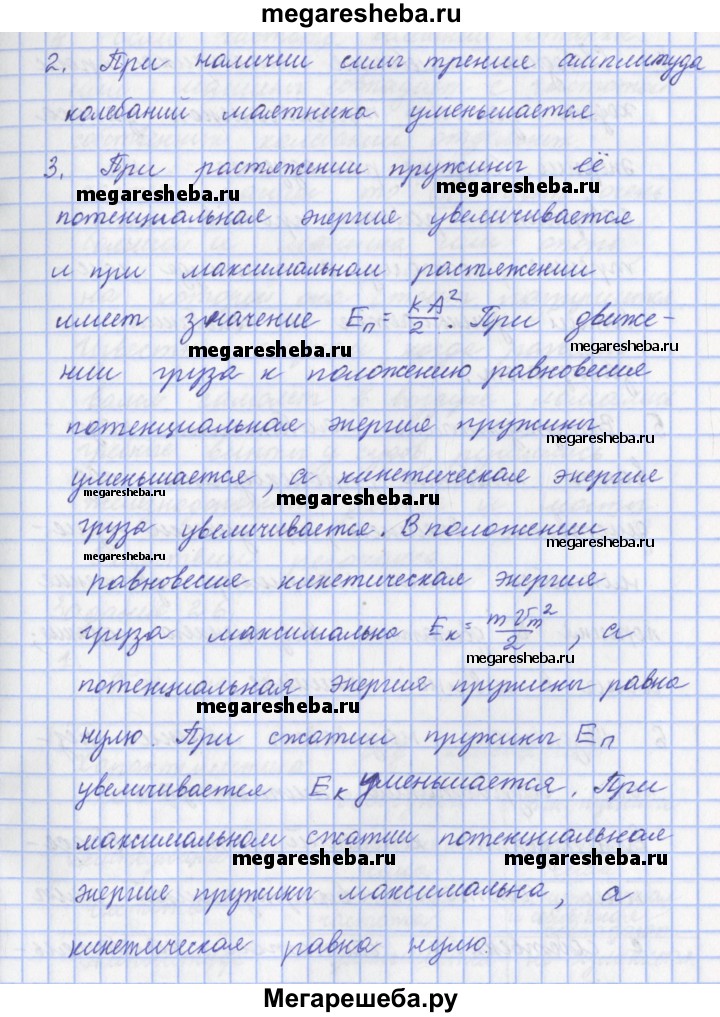 megaresheba.ru
2. При наличии силы трения амплитуда
колебаний маятника уменьшается
3. При растяжении пружины её
megaresheba.ru megaresheba.ru
потенциальная энергия увеличивается
и при максимальном растяжении
имеет значение Eп = kA²/2. При движе-
megaresheba.ru megaresheba.ru
нии груза к положению равновесия
потенциальная энергия пружины
уменьшается, а кинетическая энергия
megaresheba.ru megaresheba.ru
груза увеличивается. В положении
megaresheba.ru megaresheba.ru
равновесия кинетическая энергия
груза максимально Eк = mVm²/2, а
megaresheba.ru
потенциальная энергия пружины равна
megaresheba.ru
нулю. При сжатии пружины Eп
увеличивается Eк уменьшается. При
максимальном сжатии потенциальная
megaresheba.ru megaresheba.ru
энергие пружины максимальна, а
кинетическая равна нулю.
Мегарешеба.ру